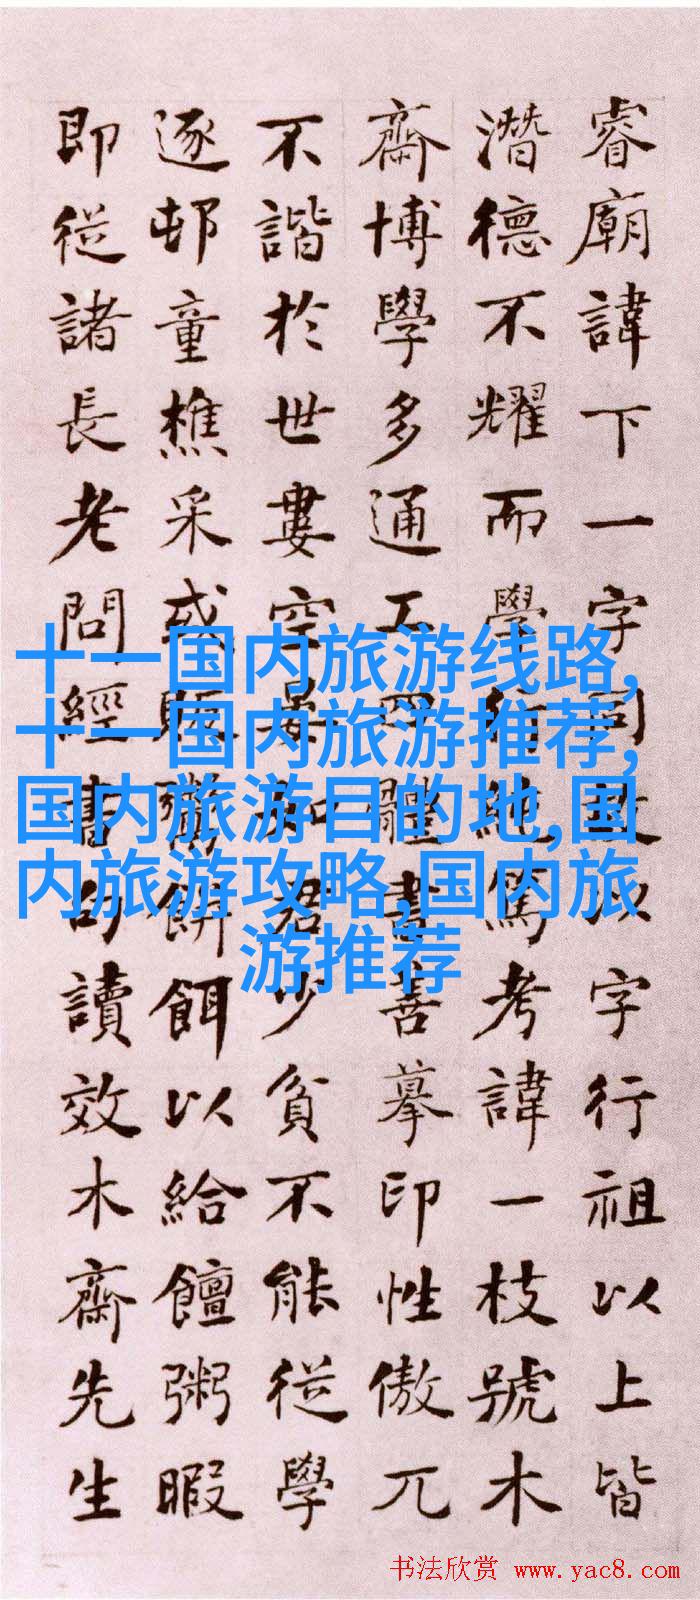 睿廟諱下一字同故以字行祖以上皆
潛德不耀而學行純篤考諱一枝號木
齋博學多通工四體書善摹印性傲兀
不諧於世婁空晏如君少貧不能從學
逐邨童樵采或販鬻餅餌以給饘粥暇
即從諸長老問經書句讀效木齋先生
十一国内旅游线路,
十一国内旅游推荐,
国内旅游目的地,国
内旅游攻略,国内旅
游推荐
书法欣赏 www.yac8.com